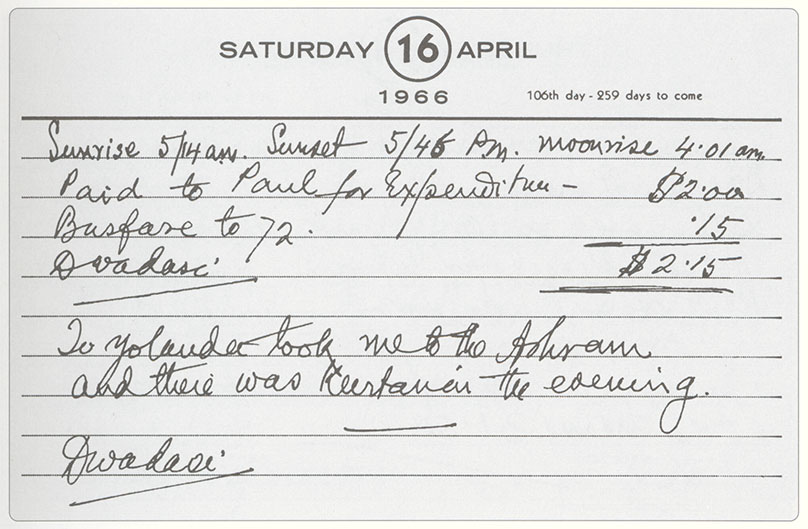 SATURDAY 16 APRIL
1966
106th day - 259 days to come
Sunrise 5/14 am. Sunset 5/46 Pm. moonrise 4.01 am.
Paid to Paul for Expenditure - $2.00
Busfare to 72. .15
Dwadasi $2.15
To Yolanda took me to the Ashram
and there was Kirtan in the evening.
Dwadasi